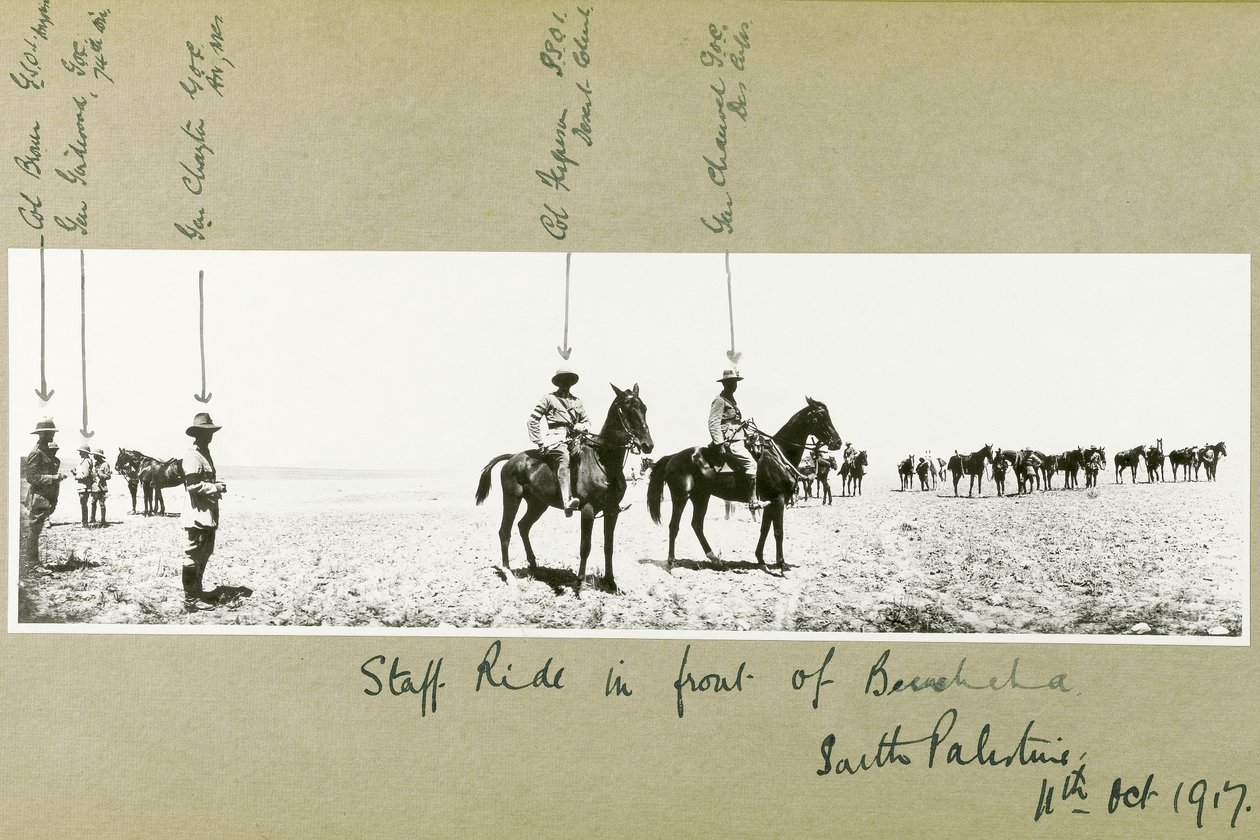 Col Brown G.S.O.1
Gen Girdwood, G.O.C.
74th Div.
Gen Chaytor G.O.C.
Col
Desert Column
Gen Chauvel G.O.C.
Des
Staff Ride in front of
South Palestine,
11th Oct 1917.